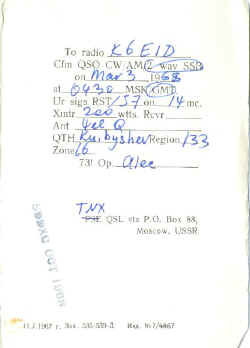 To radio K6EID
Cfm QSO CW AM/2 way SSB
on Mar 3 1968
at 0430 MSK/GMT
Ur sigs RST/57 on 14 mc.
Xmtr 200 wtts. Rcvr
Ant Q
QTH Kuibyshev Region /33
Zone 16
73! Op. Alec
TNX
PSE QSL via P.O. Box 88,
Moscow, USSR
OCT 1968
1967 г. Зак.
Изд. №7/4867